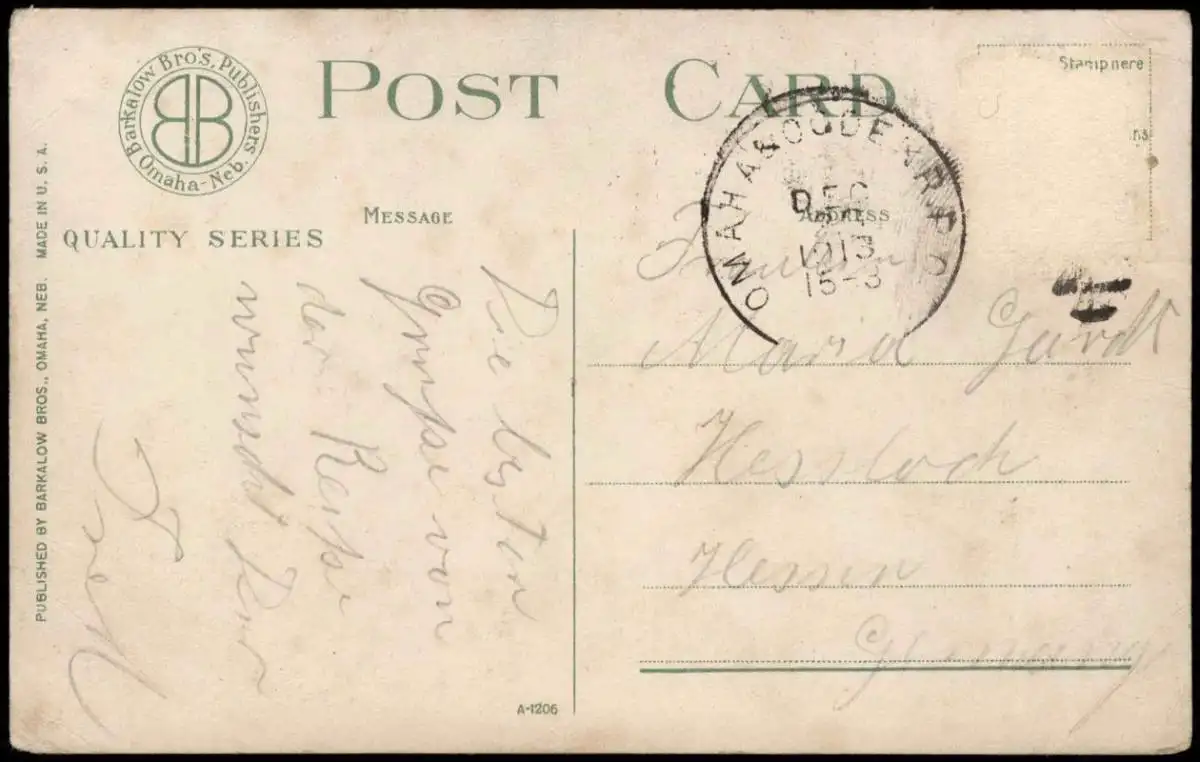 Barkalow Bro's. Publishers.
Omaha-Neb.
POST CARD
Stamp here
MESSAGE
ADDRESS
QUALITY SERIES
OMAHA & OGDEN R.P.O.
DEC
1913
15-3
PUBLISHED BY BARKALOW BROS., OMAHA, NEB. MADE IN U. S. A.
Die besten
Grüsse von
der Reise
wünscht Dir
Maria
Hessloch
Hessen
Germany
A-1206